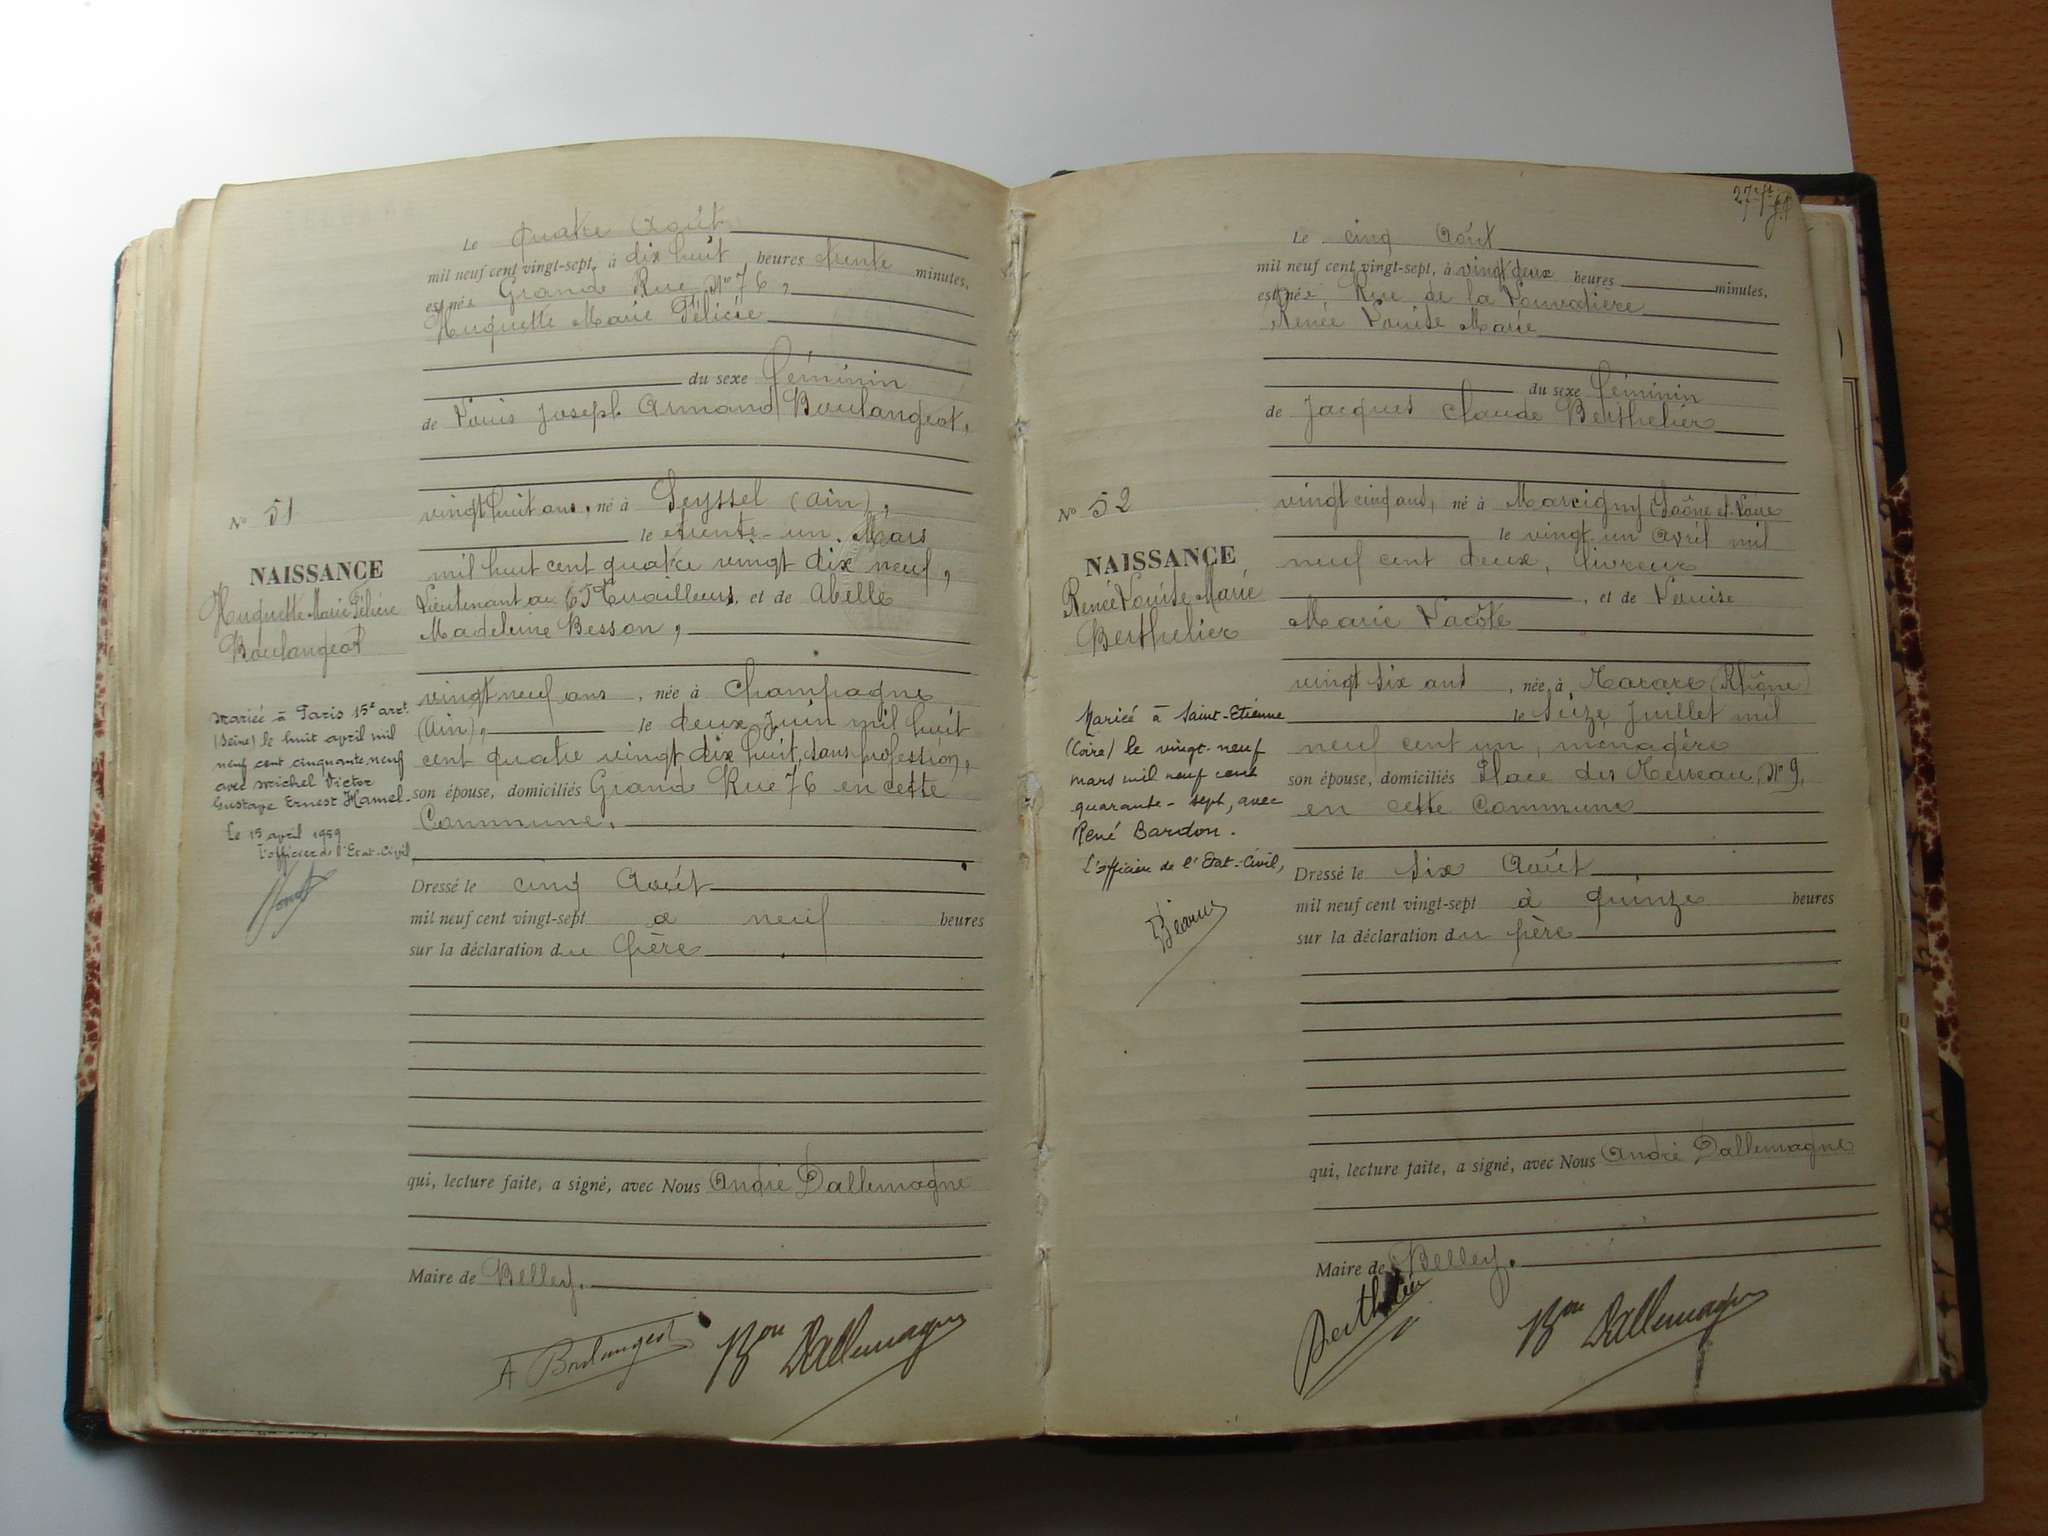 Le quatre Août
mil neuf cent vingt-sept, à dix huit heures trente minutes,
est née Grande Rue N° 76,
Huguette Marie Félicie
du sexe féminin
de Louis Joseph Armand Boulangeot,
N° 51
vingt huit ans, né à Seyssel (Ain),
le trente-un Mars
NAISSANCE
mil huit cent quatre vingt dix neuf,
Huguette Marie Félicie
Boulangeot
Lieutenant au 65e Tirailleurs, et de Abelle
Madeleine Besson,
vingt neuf ans, née à Champagne
(Ain), le deux Juin mil huit
cent quatre vingt dix huit, sans profession,
son épouse, domiciliés Grande Rue 76 en cette
Commune.
Mariée à Paris 15e arrt
(Seine) le huit avril mil
neuf cent cinquante neuf
avec Michel Victor
Gustave Ernest Hamel.
Le 15 avril 1959
l'officier de l'Etat-Civil,
Dressé le cinq Août
mil neuf cent vingt-sept à neuf heures
sur la déclaration du père
qui, lecture faite, a signé, avec Nous André Dallemagne
Maire de Belley.
A Boulangeot Bon Dallemagne
27
Le cinq Août
mil neuf cent vingt-sept, à vingt deux heures minutes,
est née, Rue de la
Renée Louise Marie
du sexe féminin
de Jacques Claude Berthelier
N° 52
vingt cinq ans, né à Marcigny (Saône et Loire
le vingt-un Avril mil
NAISSANCE
neuf cent deux, livreur
Renée Louise Marie
Berthelier
, et de Louise
Marie Lacôte
vingt six ans, née à Tarare (Rhône)
le Seize Juillet mil
neuf cent un, ménagère
son épouse, domiciliés Place des Terreaux, N° 9,
en cette Commune
Mariée à Saint-Etienne
(Loire) le vingt-neuf
mars mil neuf cent
quarante-sept, avec
René Bardon.
L'officier de l'Etat-Civil,
Dressé le Six Août
mil neuf cent vingt-sept à quinze heures
sur la déclaration du père
qui, lecture faite, a signé, avec Nous André Dallemagne
Maire de Belley.
Berthelier Bon Dallemagne